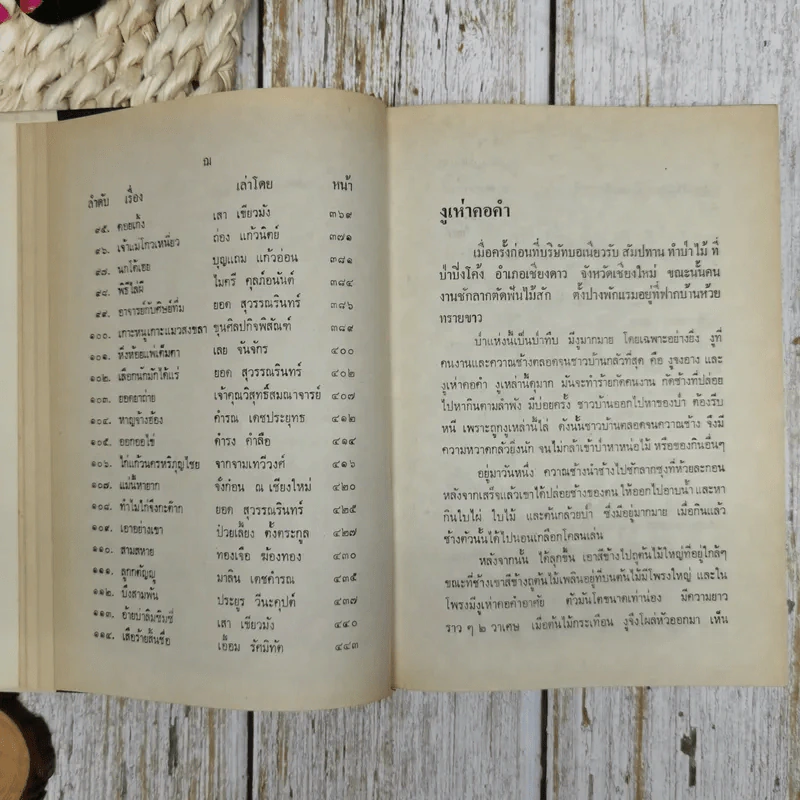 ฌ
ลำดับ เรื่อง เล่าโดย หน้า
๙๕. คอยเก้ง เสา เขียวมัง ๓๖๙
๙๖. เจ้าแม่โกวเหนี่ยว ถ่อง แก้วนิตย์ ๓๗๑
๙๗. นกโต้เอย บุญแถม แก้วอ่อน ๓๘๑
๙๘. พิธีไล่ผี ไมตรี กุลภ์อนันต์ ๓๘๔
๙๙. อาจารย์กับศิษย์ทึ่ม ยอด สุวรรณรินทร์ ๓๘๖
๑๐๐. เกาะหนูเกาะแมวสงขลา ขุนศิลปกิจพิสัณห์ ๓๘๙
๑๐๑. หิ่งห้อยแพ้เต็มดา เลย จันจักร ๔๐๐
๑๐๒. เลือกนักมักได้แร่ ยอด สุวรรณรินทร์ ๔๐๒
๑๐๓. ยอดยาถ่าย เจ้าคุณวิสุทธิ์สมณาจารย์ ๔๐๗
๑๐๔. หาญจ้างฮ้อง คำรณ เดชประยุทธ ๔๑๒
๑๐๕. ออกออไข่ ดำรง คำลือ ๔๑๔
๑๐๖. ไก่แก้วนครหริภุญไชย จากจามเทวีวงศ์ ๔๑๖
๑๐๗. แม่น้ำหายาก จั่งก่อน ณ เชียงใหม่ ๔๒๐
๑๐๘. ทำไมไก่จึงกะต๊าก ยอด สุวรรณรินทร์ ๔๒๕
๑๐๙. เอาอย่างเขา ป๋วยเลี้ยง ตั้งตระกูล ๔๒๗
๑๑๐. สามสหาย ทองเจือ ฆ้องทอง ๔๓๐
๑๑๑. ลูกกตัญญู มาลิน เดชคำรณ ๔๓๕
๑๑๒. บึงสามพัน ประยูร วีนะคุปต์ ๔๓๗
๑๑๓. อ้ายบ่าลิมซิมซี่ เสา เขียวมัง ๔๔๐
๑๑๔. เสือร้ายสิ้นชื่อ เอื้อม รัศมิทัต ๔๔๓
งูเห่าคอคำ
เมื่อครั้งก่อนที่บริษัทบอเนียวรับ สัมปทาน ทำป่าไม้ ที่
ป่าปิงโค้ง อำเภอเชียงดาว จังหวัดเชียงใหม่ ขณะนั้นคน
งานชักลากตัดฟันไม้สัก ตั้งปางพักแรมอยู่ที่ฟากบ้านห้วย
ทรายขาว
ป่าแห่งนี้เป็นป่าทึบ มีงูมากมาย โดยเฉพาะอย่างยิ่ง งูที่
คนงานและควาญช้างตลอดจนชาวบ้านกลัวที่สุด คือ งูจงอาง และ
งูเห่าคอคำ งูเหล่านี้ดุมาก มันจะทำร้ายกัดคนงาน กัดช้างที่ปล่อย
ไปหากินตามลำพัง มีบ่อยครั้ง ชาวบ้านออกไปหาของป่า ต้องรีบ
หนี เพราะถูกงูเหล่านี้ไล่ ดังนั้นชาวบ้านตลอดจนควาญช้าง จึงมี
ความหวาดกลัวยิ่งนัก จนไม่กล้าเข้าป่าหาหน่อไม้ หรือของกินอื่นๆ
อยู่มาวันหนึ่ง ควาญช้างนำช้างไปชักลากซุงที่ห้วยละกอน
หลังจากเสร็จแล้วเขาได้ปล่อยช้างของตน ให้ออกไปอาบน้ำ และหา
กินใบไผ่ ใบไม้ และต้นกล้วยป่า ซึ่งมีอยู่มากมาย เมื่อกินแล้ว
ช้างตัวนั้นได้ไปนอนเกลือกโคลนเล่น
หลังจากนั้น ได้ลุกขึ้น เอาสีข้างไปถูต้นไม้ใหญ่ที่อยู่ใกล้ๆ
ขณะที่ช้างเอาสีข้างถูต้นไม้เพลินอยู่ที่บนต้นไม้มีโพรงใหญ่ และใน
โพรงมีงูเห่าคอคำอาศัย ตัวมันโตขนาดเท่าน่อง มีความยาว
ราว ๆ ๒ วาเศษ เมื่อต้นไม้กระเทือน งูจึงโผล่หัวออกมา เห็น